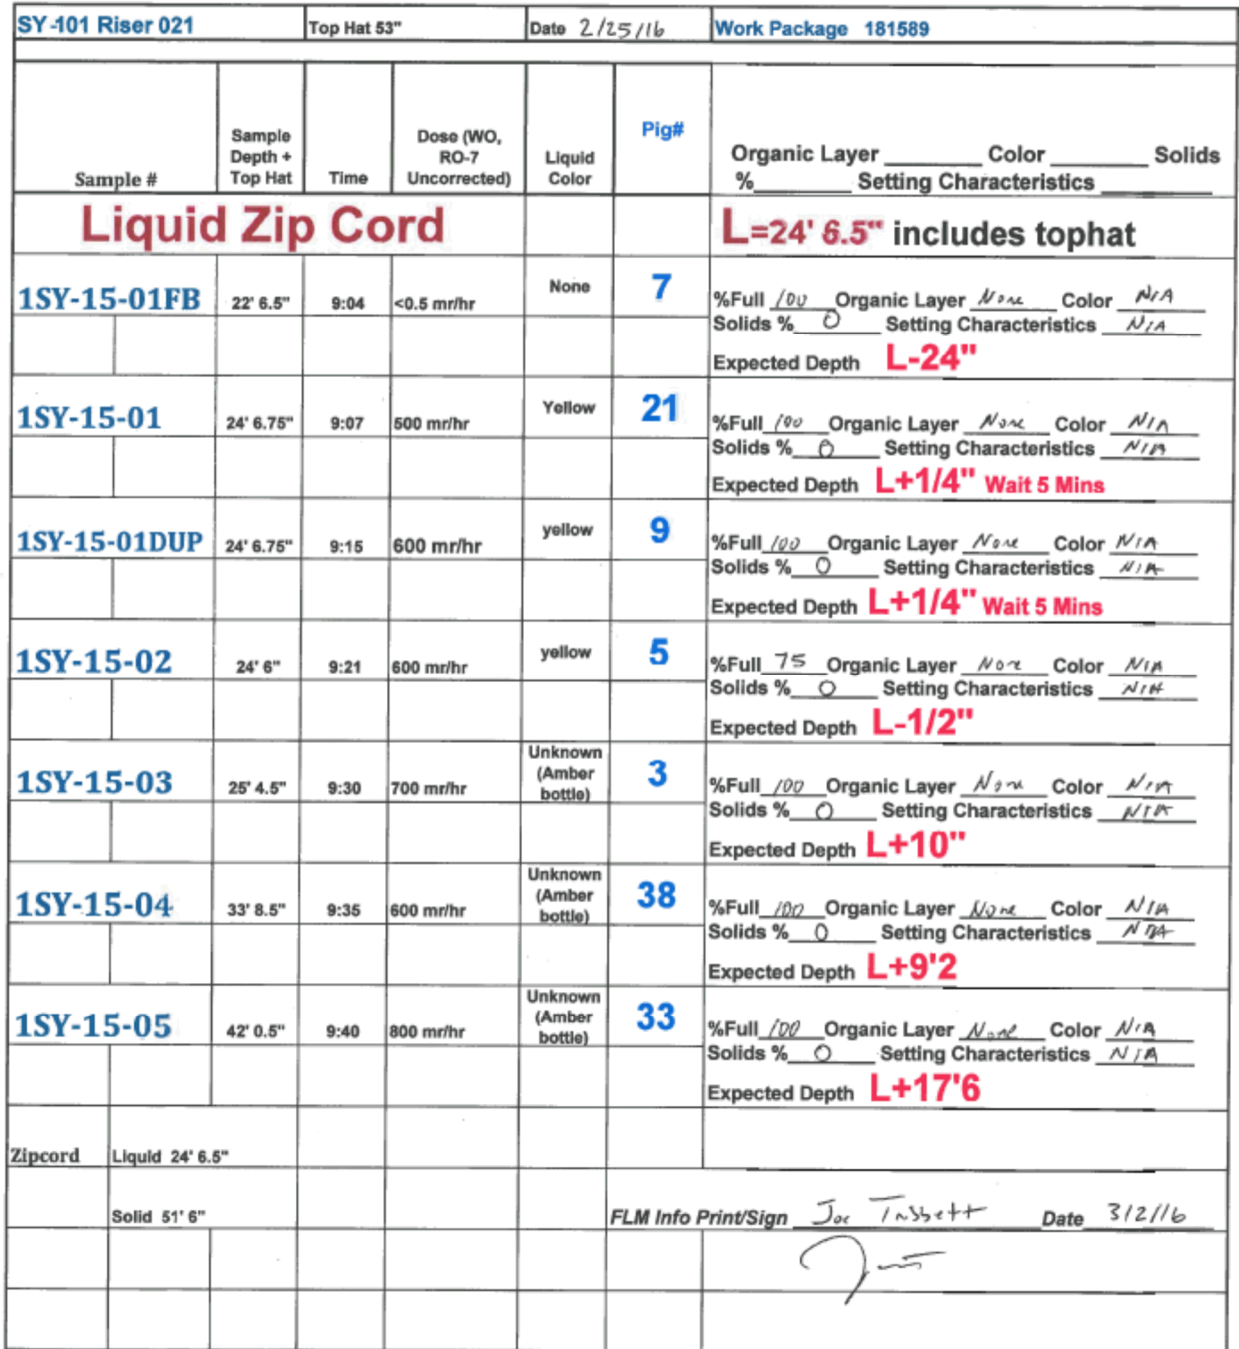 SY-101 Riser 021 Top Hat 53" Date 2/25/16 Work Package 181589
Sample # Sample Depth + Top Hat Time Dose (WO, RO-7 Uncorrected) Liquid Color Pig# Organic Layer ________ Color ________ Solids
%________ Setting Characteristics ________
Liquid Zip Cord L=24' 6.5" includes tophat
1SY-15-01FB 22' 6.5" 9:04 <0.5 mr/hr None 7 %Full 100 Organic Layer None Color N/A
Solids % 0 Setting Characteristics N/A
Expected Depth L-24"
1SY-15-01 24' 6.75" 9:07 500 mr/hr Yellow 21 %Full 100 Organic Layer None Color N/A
Solids % 0 Setting Characteristics N/A
Expected Depth L+1/4" Wait 5 Mins
1SY-15-01DUP 24' 6.75" 9:15 600 mr/hr yellow 9 %Full 100 Organic Layer None Color N/A
Solids % 0 Setting Characteristics N/A
Expected Depth L+1/4" Wait 5 Mins
1SY-15-02 24' 6" 9:21 600 mr/hr yellow 5 %Full 75 Organic Layer None Color N/A
Solids % 0 Setting Characteristics N/A
Expected Depth L-1/2"
1SY-15-03 25' 4.5" 9:30 700 mr/hr Unknown (Amber bottle) 3 %Full 100 Organic Layer None Color N/A
Solids % 0 Setting Characteristics N/A
Expected Depth L+10"
1SY-15-04 33' 8.5" 9:35 600 mr/hr Unknown (Amber bottle) 38 %Full 100 Organic Layer None Color N/A
Solids % 0 Setting Characteristics N/A
Expected Depth L+9'2
1SY-15-05 42' 0.5" 9:40 800 mr/hr Unknown (Amber bottle) 33 %Full 100 Organic Layer None Color N/A
Solids % 0 Setting Characteristics N/A
Expected Depth L+17'6
Zipcord Liquid 24' 6.5"
Solid 51' 6" FLM Info Print/Sign Joe Date 3/2/16